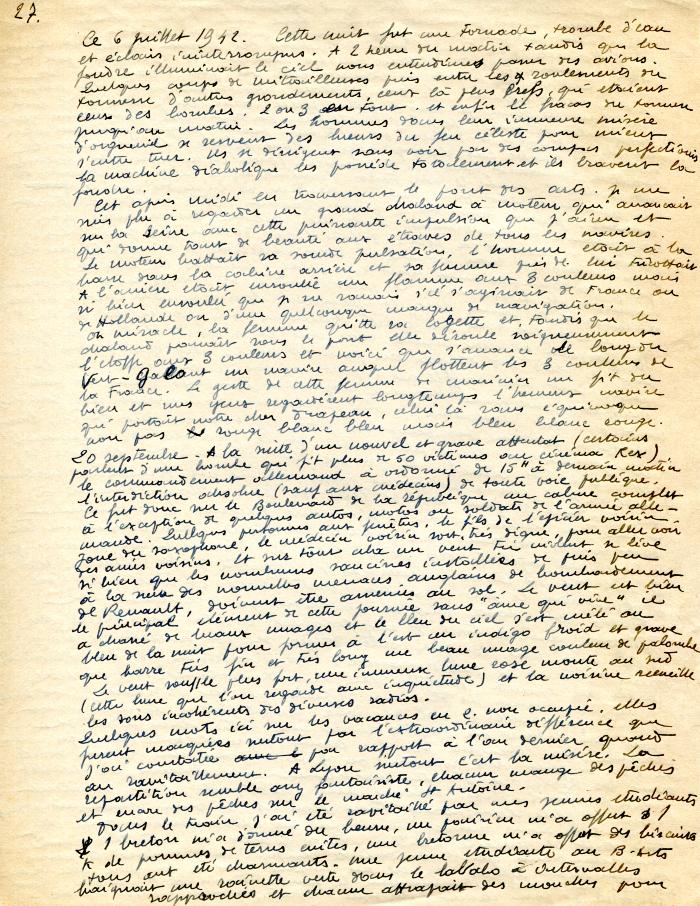 27.
Ce 6 juillet 1942. Cette nuit fut une tornade, trombe d'eau
et éclairs ininterrompus. A 2 heures du matin tandis que la
foudre illuminait le ciel nous entendîmes passer des avions.
Quelques coups de mitrailleuses puis entre les roulements du
tonnerre d'autres grondements, ceux là plus brefs, qui étaient
ceux des bombes. 2 ou 3 en tout. et enfin le fracas du tonnerre
jusqu'au matin. Les hommes dans leur immense misère
d'orgueil se servent des lueurs du feu céleste pour mieux
s'entre tuer. Ils se dirigent sans voir par des compas perfectionnés
la machine diabolique les possède totalement et ils bravent la
foudre.
Cet après midi en traversant le pont des arts. je me
suis plu à regarder un grand chaland à moteur qui avançait
sur la Seine avec cette puissante impulsion que j'aime et
qui donne tant de beauté aux étraves de tous les navires.
Le moteur battait sa sourde pulsation, l'homme était à la
barre dans la cabine arrière et sa femme près de lui tricottait
A l'arrière était enroulée une flamme aux 3 couleurs mais
si bien enroulée que je ne savais s'il s'agissait de France ou
de Hollande ou d'une quelconque marque de navigation.
Oh miracle, la femme quitte sa layette et, tandis que le
chaland passait sous le pont elle déroule soigneusement
l'étoffe aux 3 couleurs et voici que s'avance le long du
Vert-galant un navire auquel flottent les 3 couleurs de
la France. Le geste de cette femme de marinier me fit du
bien et mes yeux regardèrent longtemps l'heureux navire
qui portait notre cher drapeau, celui là sans équivoque
non pas rouge blanc bleu mais bleu blanc rouge.
20 septembre - A la suite d'un nouvel et grave attentat (certains
parlent d'une bombe qui fit plus de 50 victimes au cinéma Rex)
le commandement allemand a ordonné de 15h à demain matin
l'interdiction absolue (sauf aux médecins) de toute voie publique.
Ce fut donc sur le Boulevard de la république un calme complet
à l'exception de quelques autos, motos ou soldats de l'armée alle-
mande. Quelques personnes aux fenêtres, le fils de l'épicier voisin
joue du saxophone, le médecin voisin sort, très digne, pour aller voir
des amis voisins. Et sur tout cela un vent très violent se lève
si bien que les nombreuses saucisses installées depuis peu
à la suite des nouvelles menaces anglaises de bombardement
de Renault, doivent être amenées au sol. Le vent est bien
le principal élément de cette journée sans "âme qui vive" il
a chassé de beaux nuages et le bleu du ciel s'est mêlé au
bleu de la nuit pour former à l'est un indigo froid et grave
que barre très fin et très long un beau nuage couleur de palombe
Le vent souffle plus fort, une immense lune rose monte au sud
(cette lune que l'on regarde avec inquiétude) et la voisine recueille
les sons incohérents des diverses radios.
Quelques mots ici sur les vacances en z. non occupée. elles
furent marquées surtout par l'extraordinaire différence que
j'ai constatée par rapport à l'an dernier quand
au ravitaillement. A Lyon surtout c'est la misère. La
répartition semble assez fantaisiste, chacun mange des pêches
et encore des pêches sur le marché St Antoine.
Dans le train j'ai été ravitaillé par mes jeunes étudiants
1 breton m'a donné du beurre, un parisien m'a offert 1
K de pommes de terres cuites, une bretonne m'a offert des biscuits
tous ont été charmants. une jeune étudiante aux B-Arts
baignait une rainette verte dans le lababo à intervalles
rapprochés et chacun attrapait des mouches pour